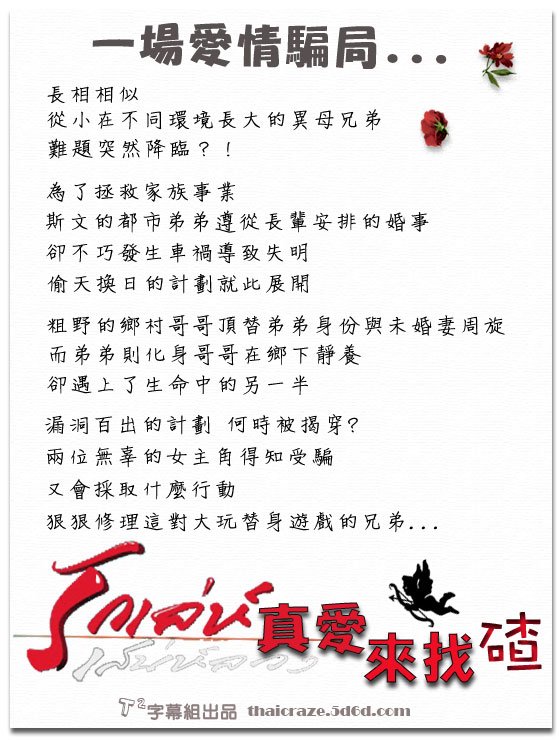 一場愛情騙局...
長相相似
從小在不同環境長大的異母兄弟
難題突然降臨？！
為了拯救家族事業
斯文的都市弟弟遵從長輩安排的婚事
卻不巧發生車禍導致失明
偷天換日的計劃就此展開
粗野的鄉村哥哥頂替弟弟身份與未婚妻周旋
而弟弟則化身哥哥在鄉下靜養
卻遇上了生命中的另一半
漏洞百出的計劃 何時被揭穿?
兩位無辜的女主角得知受騙
又會採取什麼行動
狠狠修理這對大玩替身遊戲的兄弟...
真愛來找碴
T²字幕組出品 thaicraze.5d6d.com